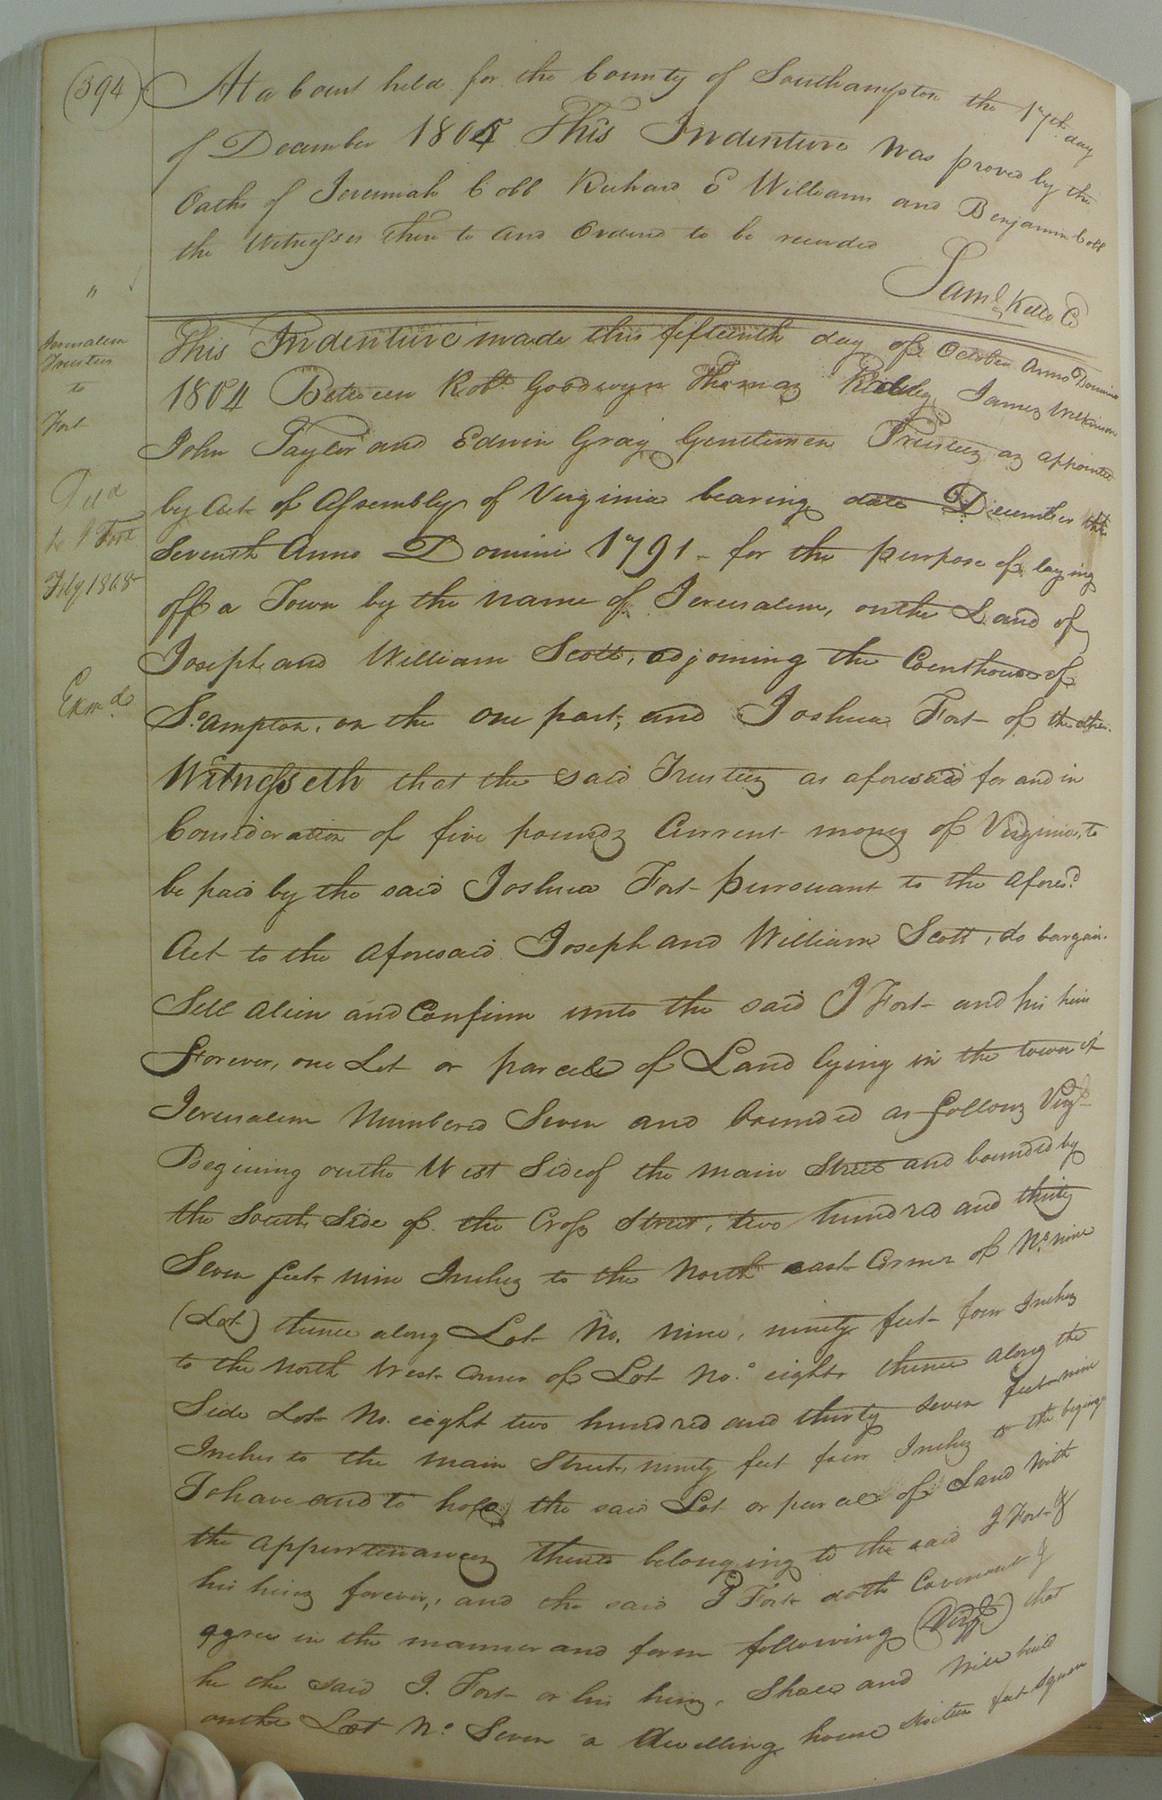 (394)
At a Court held for the County of Southampton the 17th day
of December 1804 This Indenture was proved by the
Oaths of Jeremiah Cobb Richard E Williams and Benjamin Cobb
the Witnesses there to and Ordered to be recorded
Saml. Kello C
Jerusalem
Trustees
to
Fort
Deld
to J Fort
Feby 1808
Exmd.
This Indenture made this fifteenth day of October Anno Domini
1804 Between Robt Goodwyn Thomas Ridley James Wilkinson
John Taylor and Edwin Gray Gentlemen Trustees as appointed
by Act of Assembly of Virginia bearing date December the
Seventh Anno Domini 1791 - for the purpose of laying
off a Town by the name of Jerusalem, on the Land of
Joseph and William Scott, adjoining the Courthouse of
So.ampton, on the one part, and Joshua Fort - of the other.
Witnesseth that the said Trustees as aforesaid for and in
Consideration of five pounds Current money of Virginia, to
be paid by the said Joshua Fort pursuant to the afores.d
Act to the aforesaid Joseph and William Scott, do bargain.
Sell alien and Confirm unto the said J Fort - and his heirs
Forever, one Lot or parcele of Land lying in the town of
Jerusalem Numbered Seven and bounded as follows Vizt
Begining on the West Side of the main Street and bounded by
the South Side of the Cross Street, two hundred and thirty
Seven feet nine Inches to the North east Corner of No. nine
(Lot) thence along Lot No. nine, ninety feet four Inches
to the North West Corner of Lot No. eight thence along the
Side Lot No. eight two hundred and thirty seven feet nine
Inches to the main Street, ninety feet four Inches to the begin.g
To have and to hold the said Lot or parcel of Land With
the appurtenances thereto belonging to the said J Fort &
his heirs forever, and the said J Fort doth Covenant &
agree in the manner and form following (Vizt) that
he the said J. Fort or his heirs, Shall and Will build
on the Lot No. Seven a dwelling house sixteen feet Square